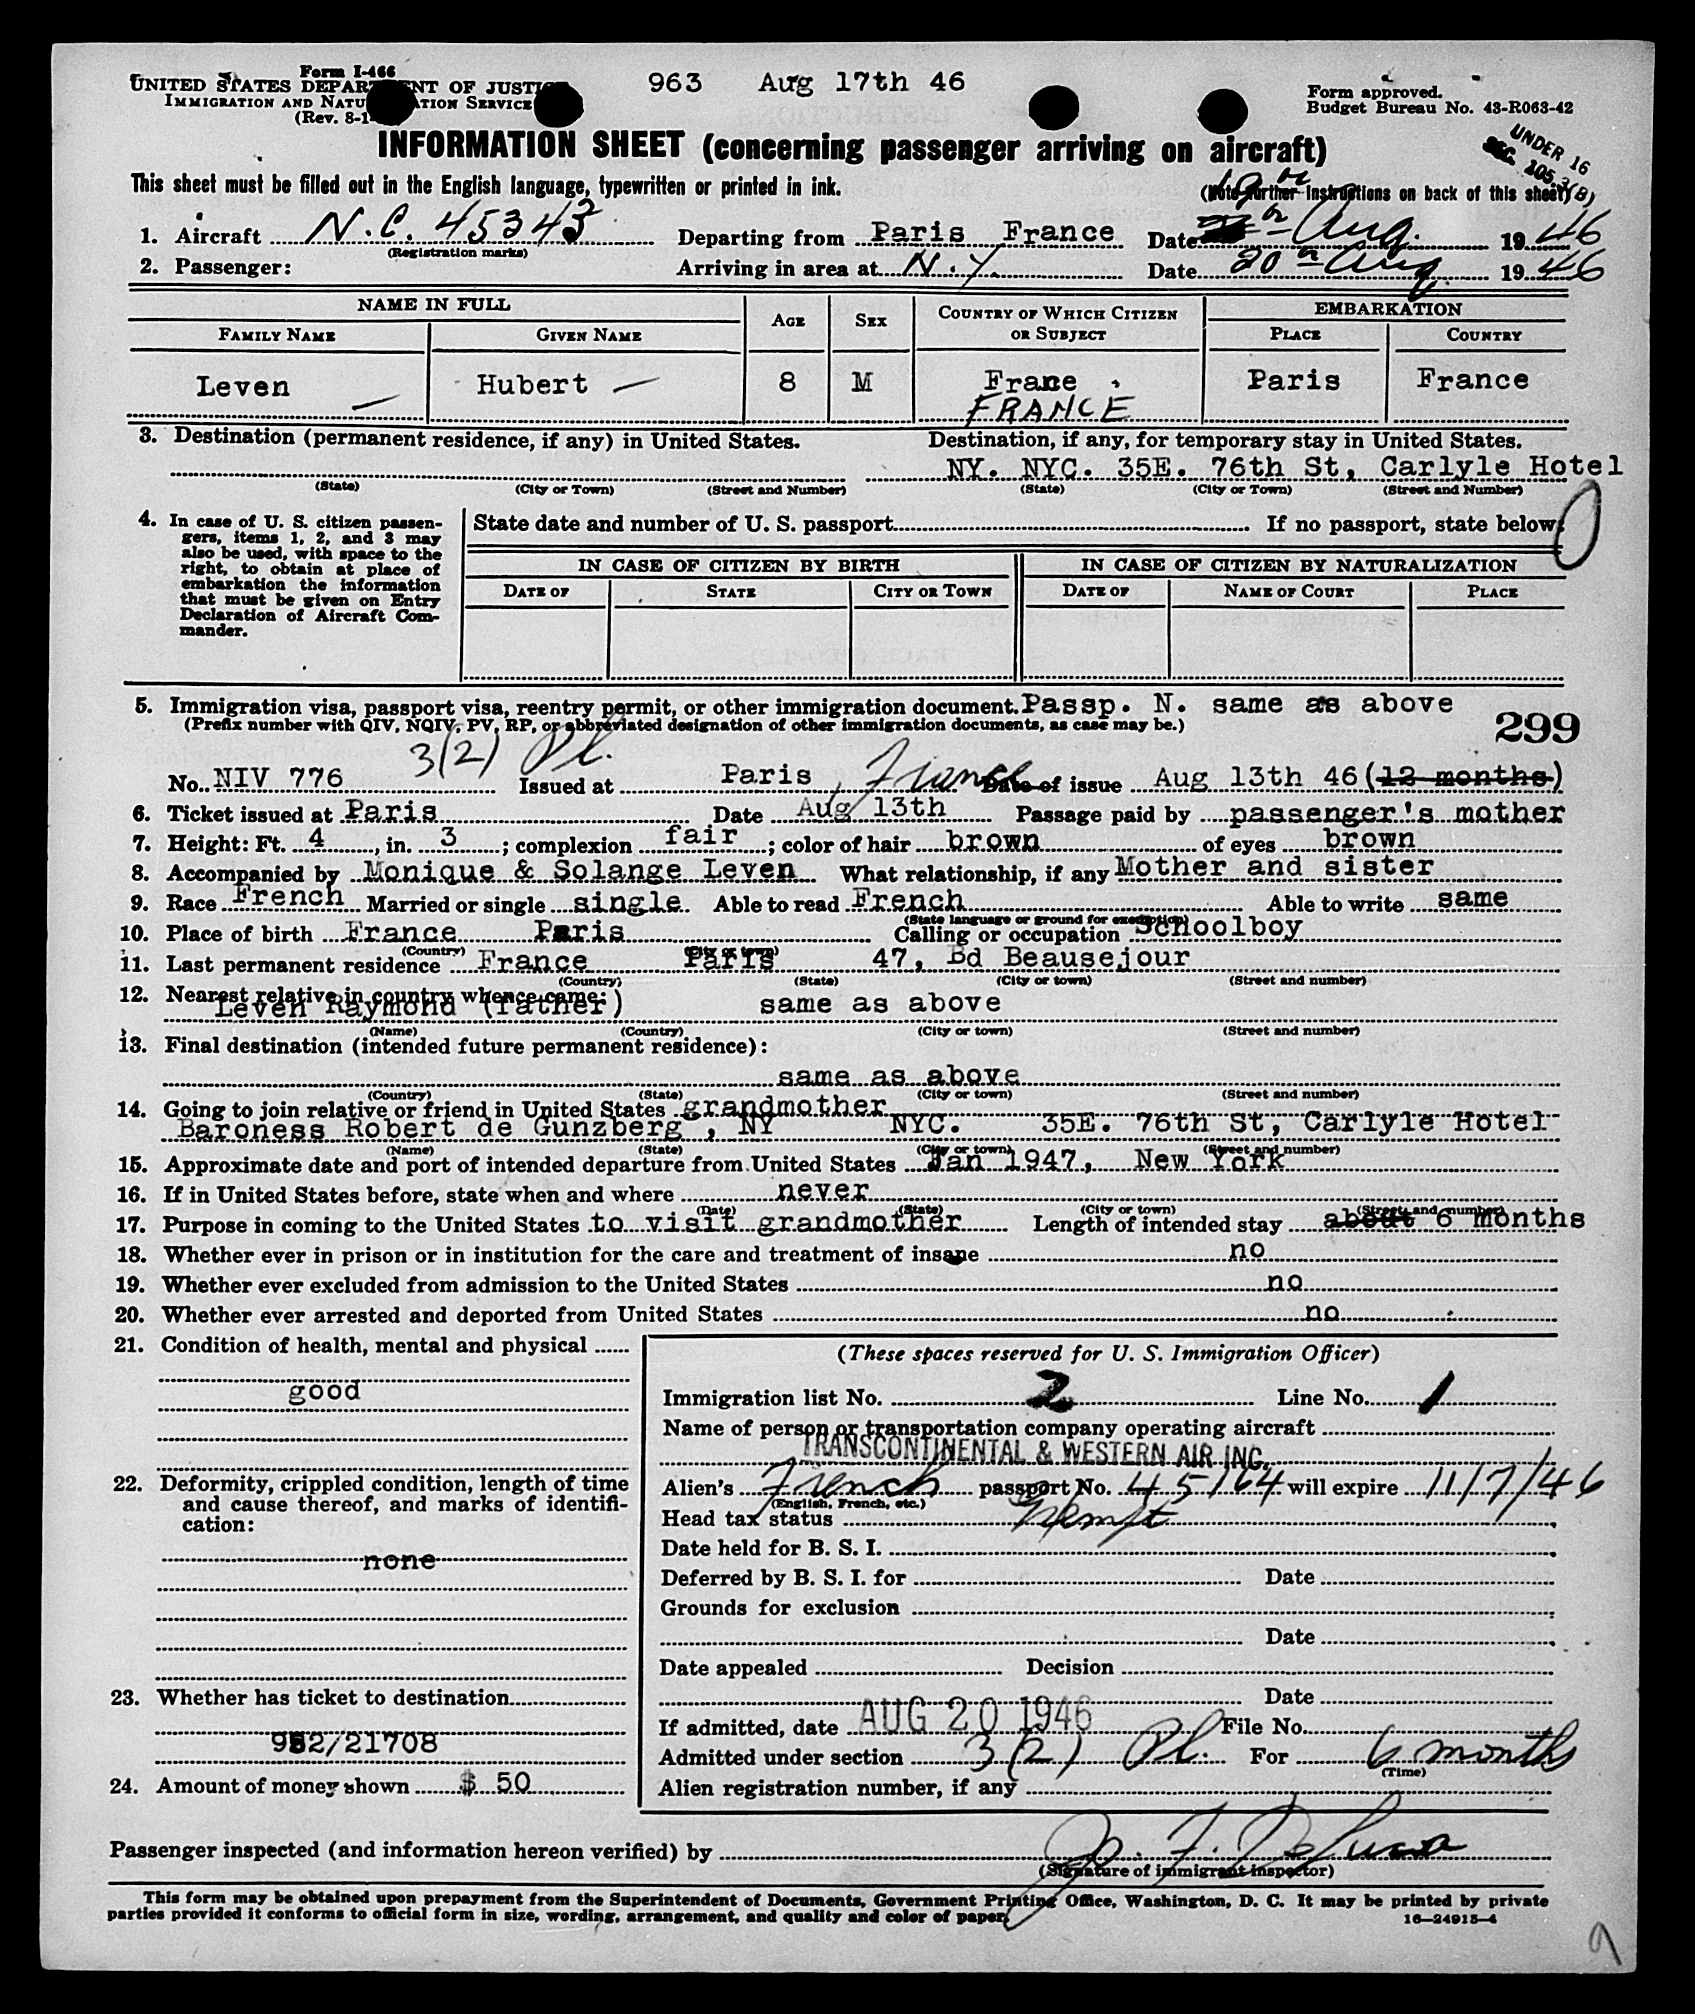 Form I-466
UNITED STATES DEPARTMENT OF JUSTICE
IMMIGRATION AND NATURALIZATION SERVICE
(Rev. 8-1-
963 Aug 17th 46
Form approved.
Budget Bureau No. 43-R063-42
UNDER 16
SEC. 105.3(B)
INFORMATION SHEET (concerning passenger arriving on aircraft)
This sheet must be filled out in the English language, typewritten or printed in ink.
(Note further instructions on back of this sheet)
1. Aircraft N.C. 45343 Departing from Paris France Date 19th Aug. 1946
(Registration marks)
2. Passenger: Arriving in area at N.Y. Date 20th Aug. 1946
NAME IN FULL
AGE SEX COUNTRY OF WHICH CITIZEN OR SUBJECT EMBARKATION
FAMILY NAME GIVEN NAME PLACE COUNTRY
Leven Hubert 8 M Frane Paris France
FRANCE
3. Destination (permanent residence, if any) in United States. Destination, if any, for temporary stay in United States.
NY. NYC. 35E. 76th St, Carlyle Hotel
(State) (City or Town) (Street and Number) (State) (City or Town) (Street and Number)
4. In case of U. S. citizen passen-
gers, items 1, 2, and 3 may
also be used, with space to the
right, to obtain at place of
embarkation the information
that must be given on Entry
Declaration of Aircraft Com-
mander.
State date and number of U. S. passport If no passport, state below:
IN CASE OF CITIZEN BY BIRTH IN CASE OF CITIZEN BY NATURALIZATION
DATE OF STATE CITY OR TOWN DATE OF NAME OF COURT PLACE
5. Immigration visa, passport visa, reentry permit, or other immigration document. Passp. N. same as above
(Prefix number with QIV, NQIV, PV, RP, or abbreviated designation of other immigration documents, as case may be.)
299
3(2) Pl.
No. NIV 776 Issued at Paris France Date of issue Aug 13th 46 (12 months)
6. Ticket issued at Paris Date Aug 13th Passage paid by passenger's mother
7. Height: Ft. 4, in. 3; complexion fair; color of hair brown of eyes brown
8. Accompanied by Monique & Solange Leven What relationship, if any Mother and sister
9. Race French Married or single single Able to read French Able to write same
(State language or ground for exemption)
10. Place of birth France Paris Calling or occupation Schoolboy
(Country) (City or town)
11. Last permanent residence France Paris 47, Bd Beausejour
(Country) (State) (City or town) (Street and number)
12. Nearest relative in country whence came:
Leven Raymond (father) same as above
(Name) (Country) (City or town) (Street and number)
13. Final destination (intended future permanent residence):
same as above
(Country) (State) (City or town) (Street and number)
14. Going to join relative or friend in United States grandmother
Baroness Robert de Gunzberg, NY NYC. 35E. 76th St, Carlyle Hotel
(Name) (State) (City or town) (Street and number)
15. Approximate date and port of intended departure from United States Jan 1947, New York
16. If in United States before, state when and where never
(Date) (State) (City or town) (Street and number)
17. Purpose in coming to the United States to visit grandmother Length of intended stay about 6 months
18. Whether ever in prison or in institution for the care and treatment of insane no
19. Whether ever excluded from admission to the United States no
20. Whether ever arrested and deported from United States no
21. Condition of health, mental and physical
good
22. Deformity, crippled condition, length of time
and cause thereof, and marks of identifi-
cation:
none
23. Whether has ticket to destination
952/21708
24. Amount of money shown $ 50
(These spaces reserved for U. S. Immigration Officer)
Immigration list No. 2 Line No. 1
Name of person or transportation company operating aircraft
TRANSCONTINENTAL & WESTERN AIR INC.
Alien's French passport No. 45164 will expire 11/7/46
(English, French, etc.)
Head tax status Exempt
Date held for B. S. I.
Deferred by B. S. I. for Date
Grounds for exclusion
Date
Date appealed Decision
Date
If admitted, date AUG 20 1946 File No.
Admitted under section 3(2) Pl. For 6 months
(Time)
Alien registration number, if any
Passenger inspected (and information hereon verified) by
(Signature of immigrant inspector)
This form may be obtained upon prepayment from the Superintendent of Documents, Government Printing Office, Washington, D. C. It may be printed by private
parties provided it conforms to official form in size, wording, arrangement, and quality and color of paper.
16—24915-4
9